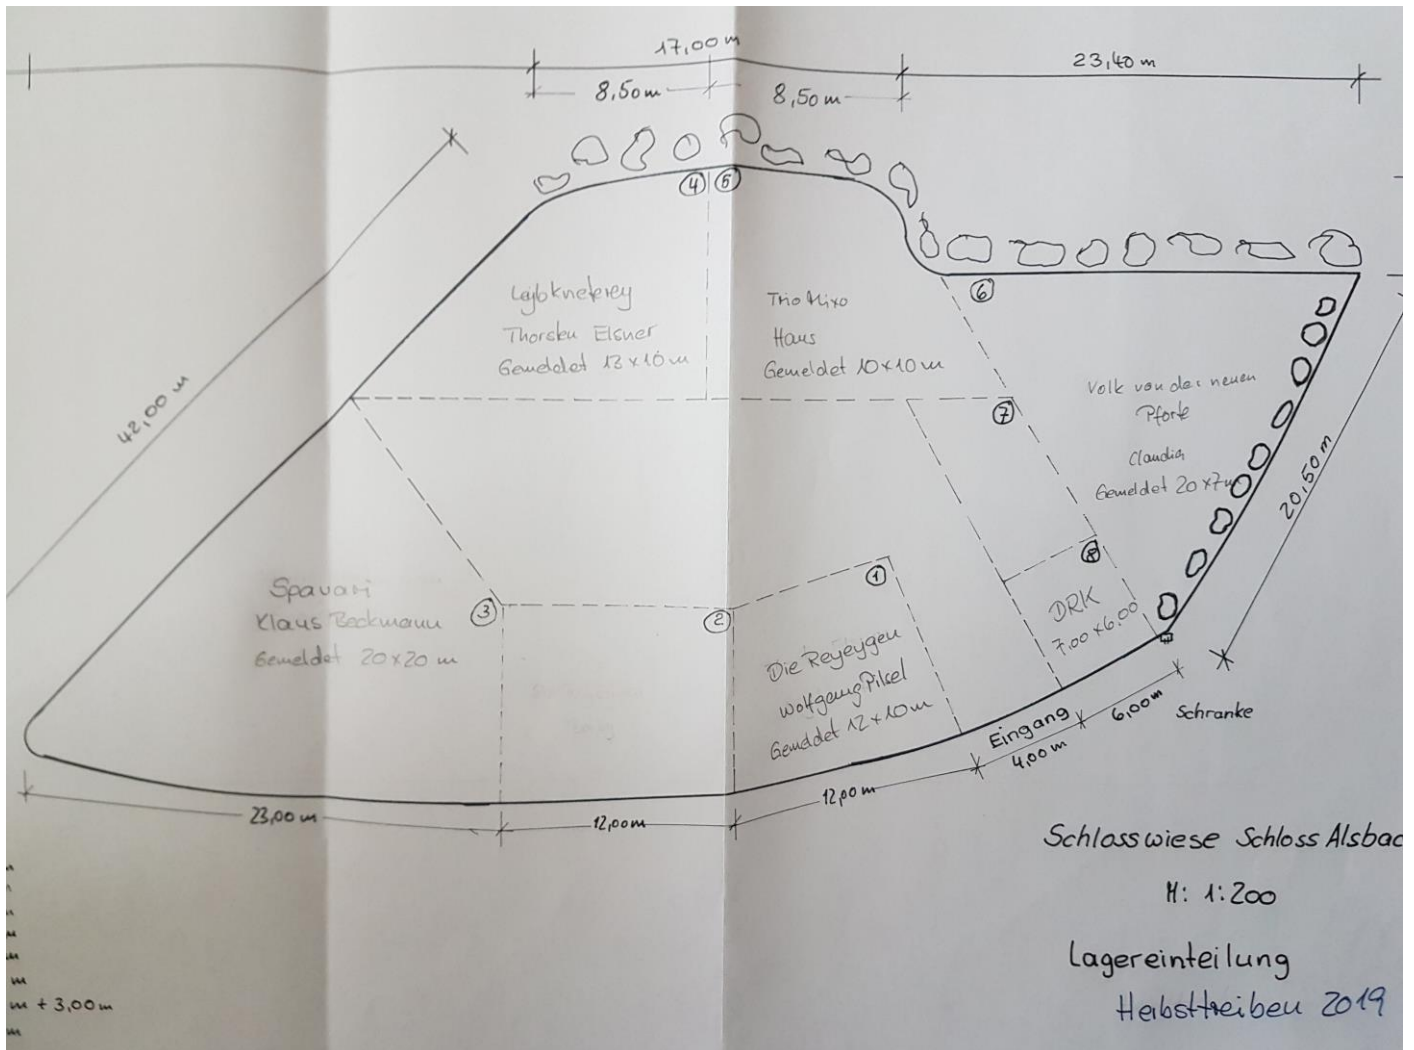 17,00 m
23,40 m
8,50 m
8,50 m
4
5
42,00 m
6
Leybkneterey
Thorsten Elsner
Gemeldet 13 x 10 m
Trio Mixo
Haus
Gemeldet 10 x 10 m
7
Volk von der neuen
Pforte
Claudia
Gemeldet 20 x 7 m
20,50 m
8
DRK
7.00 x 6.00
1
3
2
Spavari
Klaus Beckmann
Gemeldet 20 x 20 m
Die Reyeygen
Wolfgang Pilsel
Gemeldet 12 x 10 m
Eingang
4,00 m
6,00 m
Schranke
23,00 m
12,00 m
12,00 m
Schlosswiese Schloss Alsbac
M: 1:200
Lagereinteilung
Herbsttreiben 2019
m
m
m
m
m + 3,00 m
m